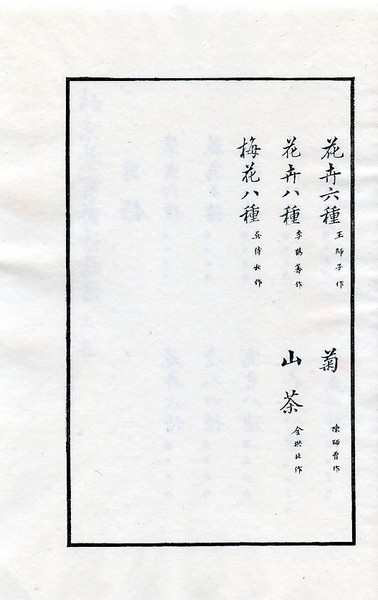 花卉六種 王師子作
菊 陳師曾作
花卉八種 李鶴籌作
山茶 金拱北作
梅花八種 吳待秋作